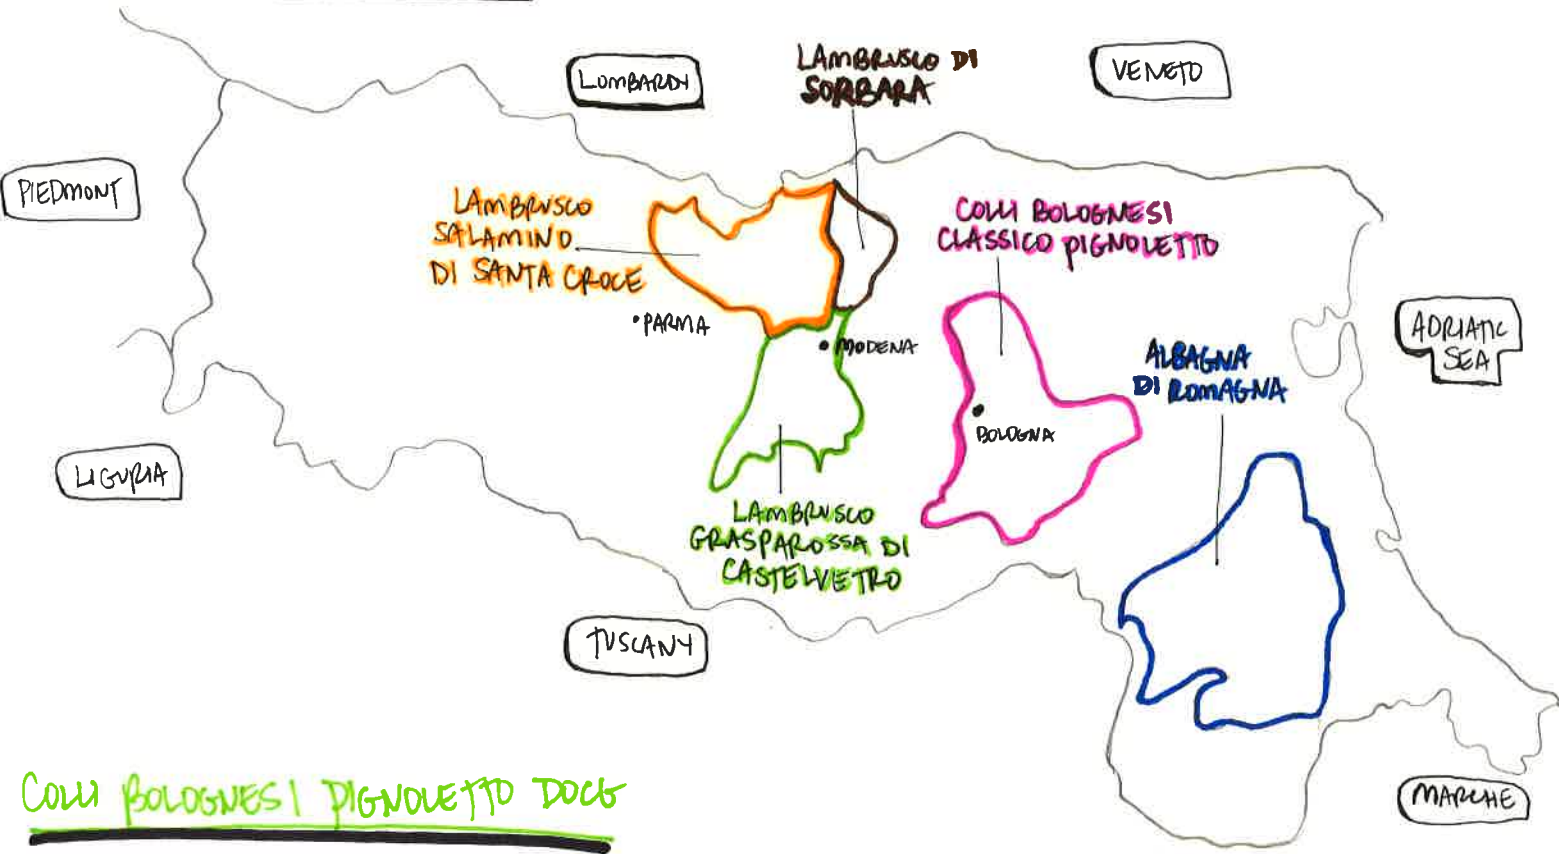 LOMBARDY
LAMBRUSCO DI
SORBARA
VENETO
PIEDMONT
LAMBRUSCO
SALAMINO
DI SANTA CROCE
COLLI BOLOGNESI
CLASSICO PIGNOLETTO
•PARMA
• MODENA
ADRIATIC
SEA
ALBAGNA
DI ROMAGNA
BOLOGNA
LIGURIA
LAMBRUSCO
GRASPAROSSA DI
CASTELVETRO
TUSCANY
COLLI BOLOGNESI PIGNOLETTO DOCG
MARCHE